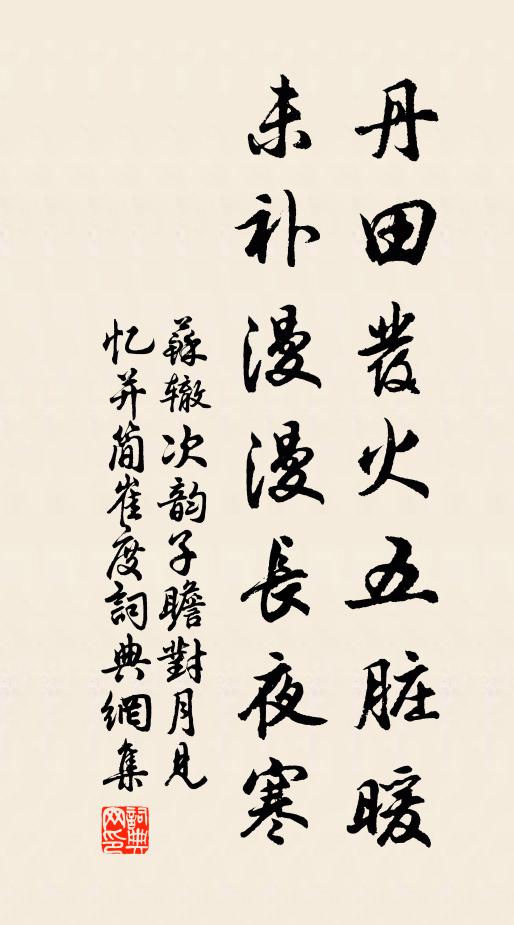 丹田發火五脏暖
未补漫漫長夜寒
蘇辙次韵子瞻對月見
忆并簡崔度詞典網集
詞典
网印